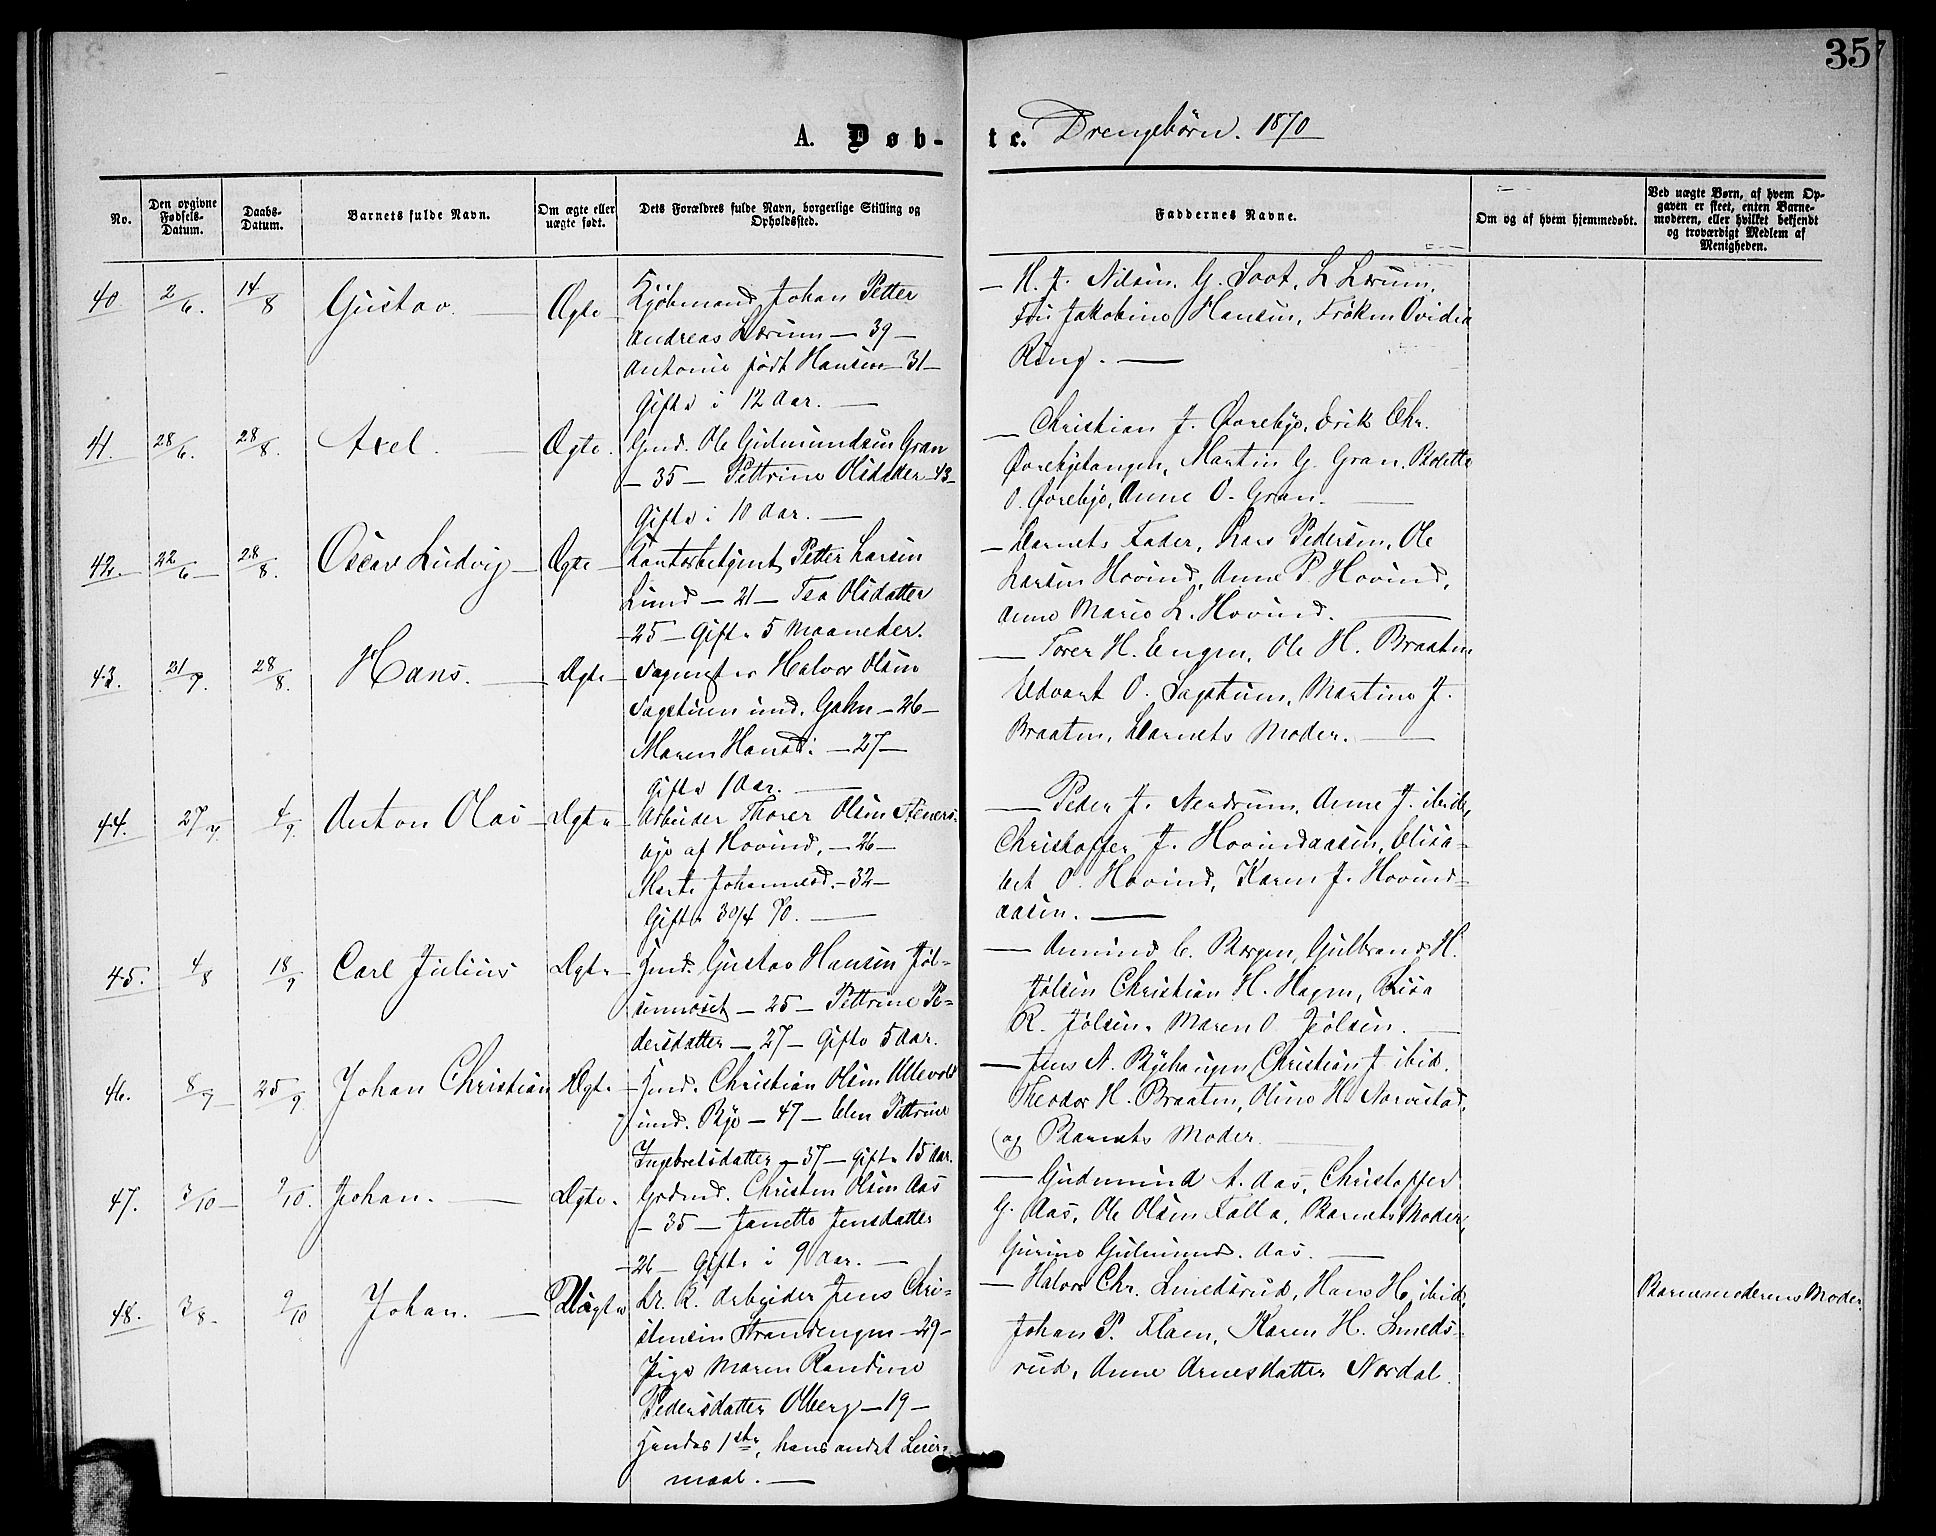 35
A. Døb-
te. Drengebørn. 1870
No.
Den opgivne Fødsels-Datum.
Daabs-Datum.
Barnets fulde Navn.
Om ægte eller uægte født.
Dets Forældres fulde Navn, borgerlige Stilling og Opholdssted.
Faddernes Navne.
Om og af hvem hjemmedøbt.
Ved uægte Børn, af hvem Opgaven er skeet, enten Barnemoderen, eller hvilket bekjendt og troværdigt Medlem af Menigheden.
40 2/6. 14/8 Gustav. — Ægte —
Kjøbmand Johan Petter
Andreas Lærum — 39 —
Antonie født Hansen — 31 —
Gifte i 12 Aar. —
— H. J. Nilsen, G. Soot, L. Lærum,
Fru Jakobine Hansen, Frøken Ovidia
Ring. —
41. 28/6. 28/8. Axel. — Ægte.
Gmd. Ole Gudmundsen Gran
— 35 — Pettrine Olsdatter — 43 —
Gifte i 10 Aar. —
— Christian J. Øvrebye, Erik Chr.
Øvrebyetangen, Martin G. Gran, Bolette
O. Øvrebye, Anne O. Gran. —
42. 22/6 — 28/8. Oscar Ludvig — Ægte —
Kontorbetjent Petter Larsen
Lund — 21 — Tea Olsdatter
— 25 — Gifte 5 Maaneder.
— Barnets Fader, Lars Pedersen, Ole
Larsen Hovind, Anne P. Hovind,
Anne Marie L. Hovind. —
43. 28/8. Hans. — Ægte —
Sagmester Halvor Olsen
Sagstuen und. Gahn — 26 —
Maren Hansd: — 27 —
Gifte 1 Aar. —
— Torer H. Engen, Ole H. Braaten
Edvart O. Sagstuen, Martine J.
Braaten, Barnets Moder. —
44. 27/7 4/9. Anton Olai — Ægte
Arbeider Thorer Olsen Steners-
bye af Hovind. — 26 —
Marte Johannesd. — 32 —
Gifte 30/4 70. —
— Peder J. Nerdrum, Anne J. ibid,
Christoffer J. Hovindaasen, Elisa-
bet O. Hovind, Karen J. Hovind-
aasen. —
45. 4/8 18/9 Carl Julius Ægte —
Hmd. Gustav Hansen Jøl-
sennoset — 25 — Pettrine Pe-
dersdatter — 27 — Gifte 5 Aar.
— Amund C. Borgen, Gulbrand H.
Jølsen Christian H. Hagen, Lisa
R. Jølsen, Maren O. Jølsen. —
46. 8/9 25/9 Johan Christian Ægte —
Hmd. Christian Olsen Ullevold
und. Bye — 47 — Elen Pettrine
Ingebretsdatter — 37 — gifte 15 Aar.
— Jens N. Byehaugen, Christian J. ibid.
Theodor H. Braaten, Oline H. Norvistad,
og Barnets Moder. —
47. 3/10 — 9/10. Johan. — Ægte.
Grdmd. Christen Olsen Aas
— 35 — Janette Jensdatter
— 26 — gifte i 9 Aar. —
— Gudmund A. Aas, Christoffer
G. Aas, Ole Olsen Falla, Barnets Moder,
Gurine Gudmunds. Aas. —
48. 3/8 — 9/10 Johan. — Uægte
Ar. K. Arbeider Jens Chri-
stensen Strandengen — 29 —
Pige Maren Randine
Pedersdatter Olberg — 19 —
Hendes 1ste, hans andet Leier-
maal. —
— Halvor Chr. Smedsrud, Hans H. ibid,
Johan P. Flaen, Karen H. Smeds-
rud, Anne Arnesdatter Nordal.
Barnemoderens Moder.